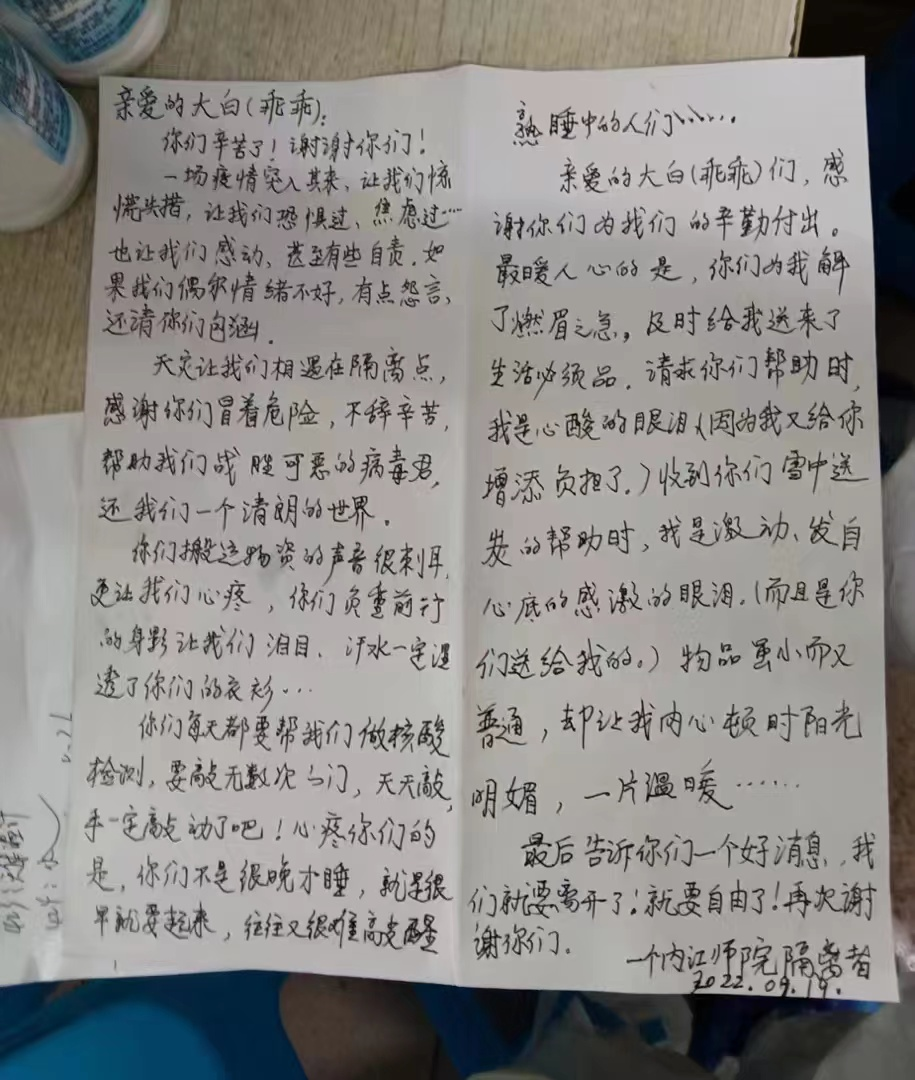 亲爱的大白(乖乖):
你们辛苦了！谢谢你们！
一场疫情突入其来，让我们惊
慌失措，让我们恐惧过、焦虑过……
也让我们感动，甚至有些自责。如
果我们偶尔情绪不好，有点怨言，
还请你们包涵。
天灾让我们相遇在隔离点，
感谢你们冒着危险，不辞辛苦，
帮助我们战胜可恶的病毒君，
还我们一个清朗的世界。
你们搬运物资的声音很刺耳，
更让我们心疼，你们负重前行
的身影让我们泪目、汗水一定湿
透了你们的衣衫…
你们每天都要帮我们做核酸
检测，要敲无数次的门，天天敲，
手一定敲动了吧！心疼你们的
是，你们不是很晚才睡，就是很
早就要起来，往往又很难敲醒
熟睡中的人们……
亲爱的大白(乖乖)们，感
谢你们为我们的辛勤付出。
最暖人心的是，你们为我解
了燃眉之急。及时给我送来了
生活必须品。请求你们帮助时，
我是心酸的眼泪(因为我又给你
增添负担了。)收到你们雪中送
炭的帮助时，我是激动、发自
心底的感激的眼泪。(而且是你
们送给我的。)物品虽小而又
普通，却让我内心顿时阳光
明媚，一片温暖……
最后告诉你们一个好消息，我
们就要离开了！就要自由了！再次谢
谢你们。
一个内江师院隔离者
2022.09.19.